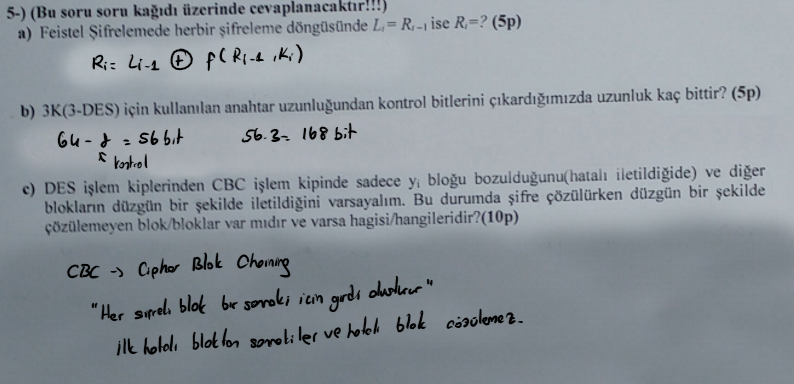 5-) (Bu soru soru kağıdı üzerinde cevaplanacaktır!!!)
a) Feistel Şifrelemede herbir şifreleme döngüsünde Lᵢ = Rᵢ₋₁ ise Rᵢ=? (5p)
Ri = Li-1 ⊕ f(Ri-1, Ki)
b) 3K(3-DES) için kullanılan anahtar uzunluğundan kontrol bitlerini çıkardığımızda uzunluk kaç bittir? (5p)
64 - 8 = 56 bit 56.3 = 168 bit
kontrol
c) DES işlem kiplerinden CBC işlem kipinde sadece yᵢ bloğu bozulduğunu(hatalı iletildiğide) ve diğer
blokların düzgün bir şekilde iletildiğini varsayalım. Bu durumda şifre çözülürken düzgün bir şekilde
çözülemeyen blok/bloklar var mıdır ve varsa hagisi/hangileridir?(10p)
CBC → Cipher Blok Chaining
"Her şifreli blok bir sonraki için girdi oluşturur"
ilk hatalı bloktan sonrakiler ve hatalı blok çözülemez.